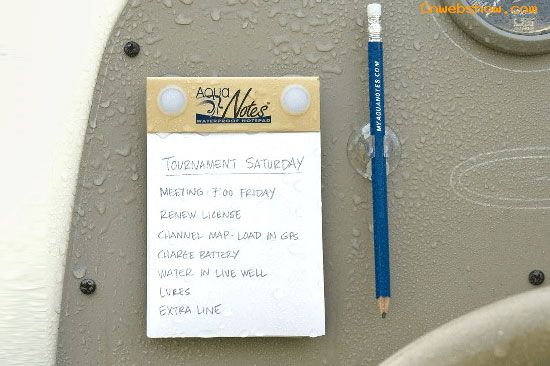 Cnwebshow.com
Aqua
Notes
WATERPROOF NOTEPAD
MYAQUANOTES.COM
TOURNAMENT SATURDAY
MEETING 7:00 FRIDAY
RENEW LICENSE
CHANNEL MAP-LOAD IN GPS
CHARGE BATTERY
WATER IN LIVE WELL
LURES
EXTRA LINE